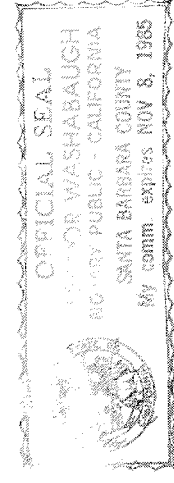 OFFICIAL SEAL
OR WASHABAUGH
NOTARY PUBLIC - CALIFORNIA
SANTA BARBARA COUNTY
My comm. expires NOV 8, 1985